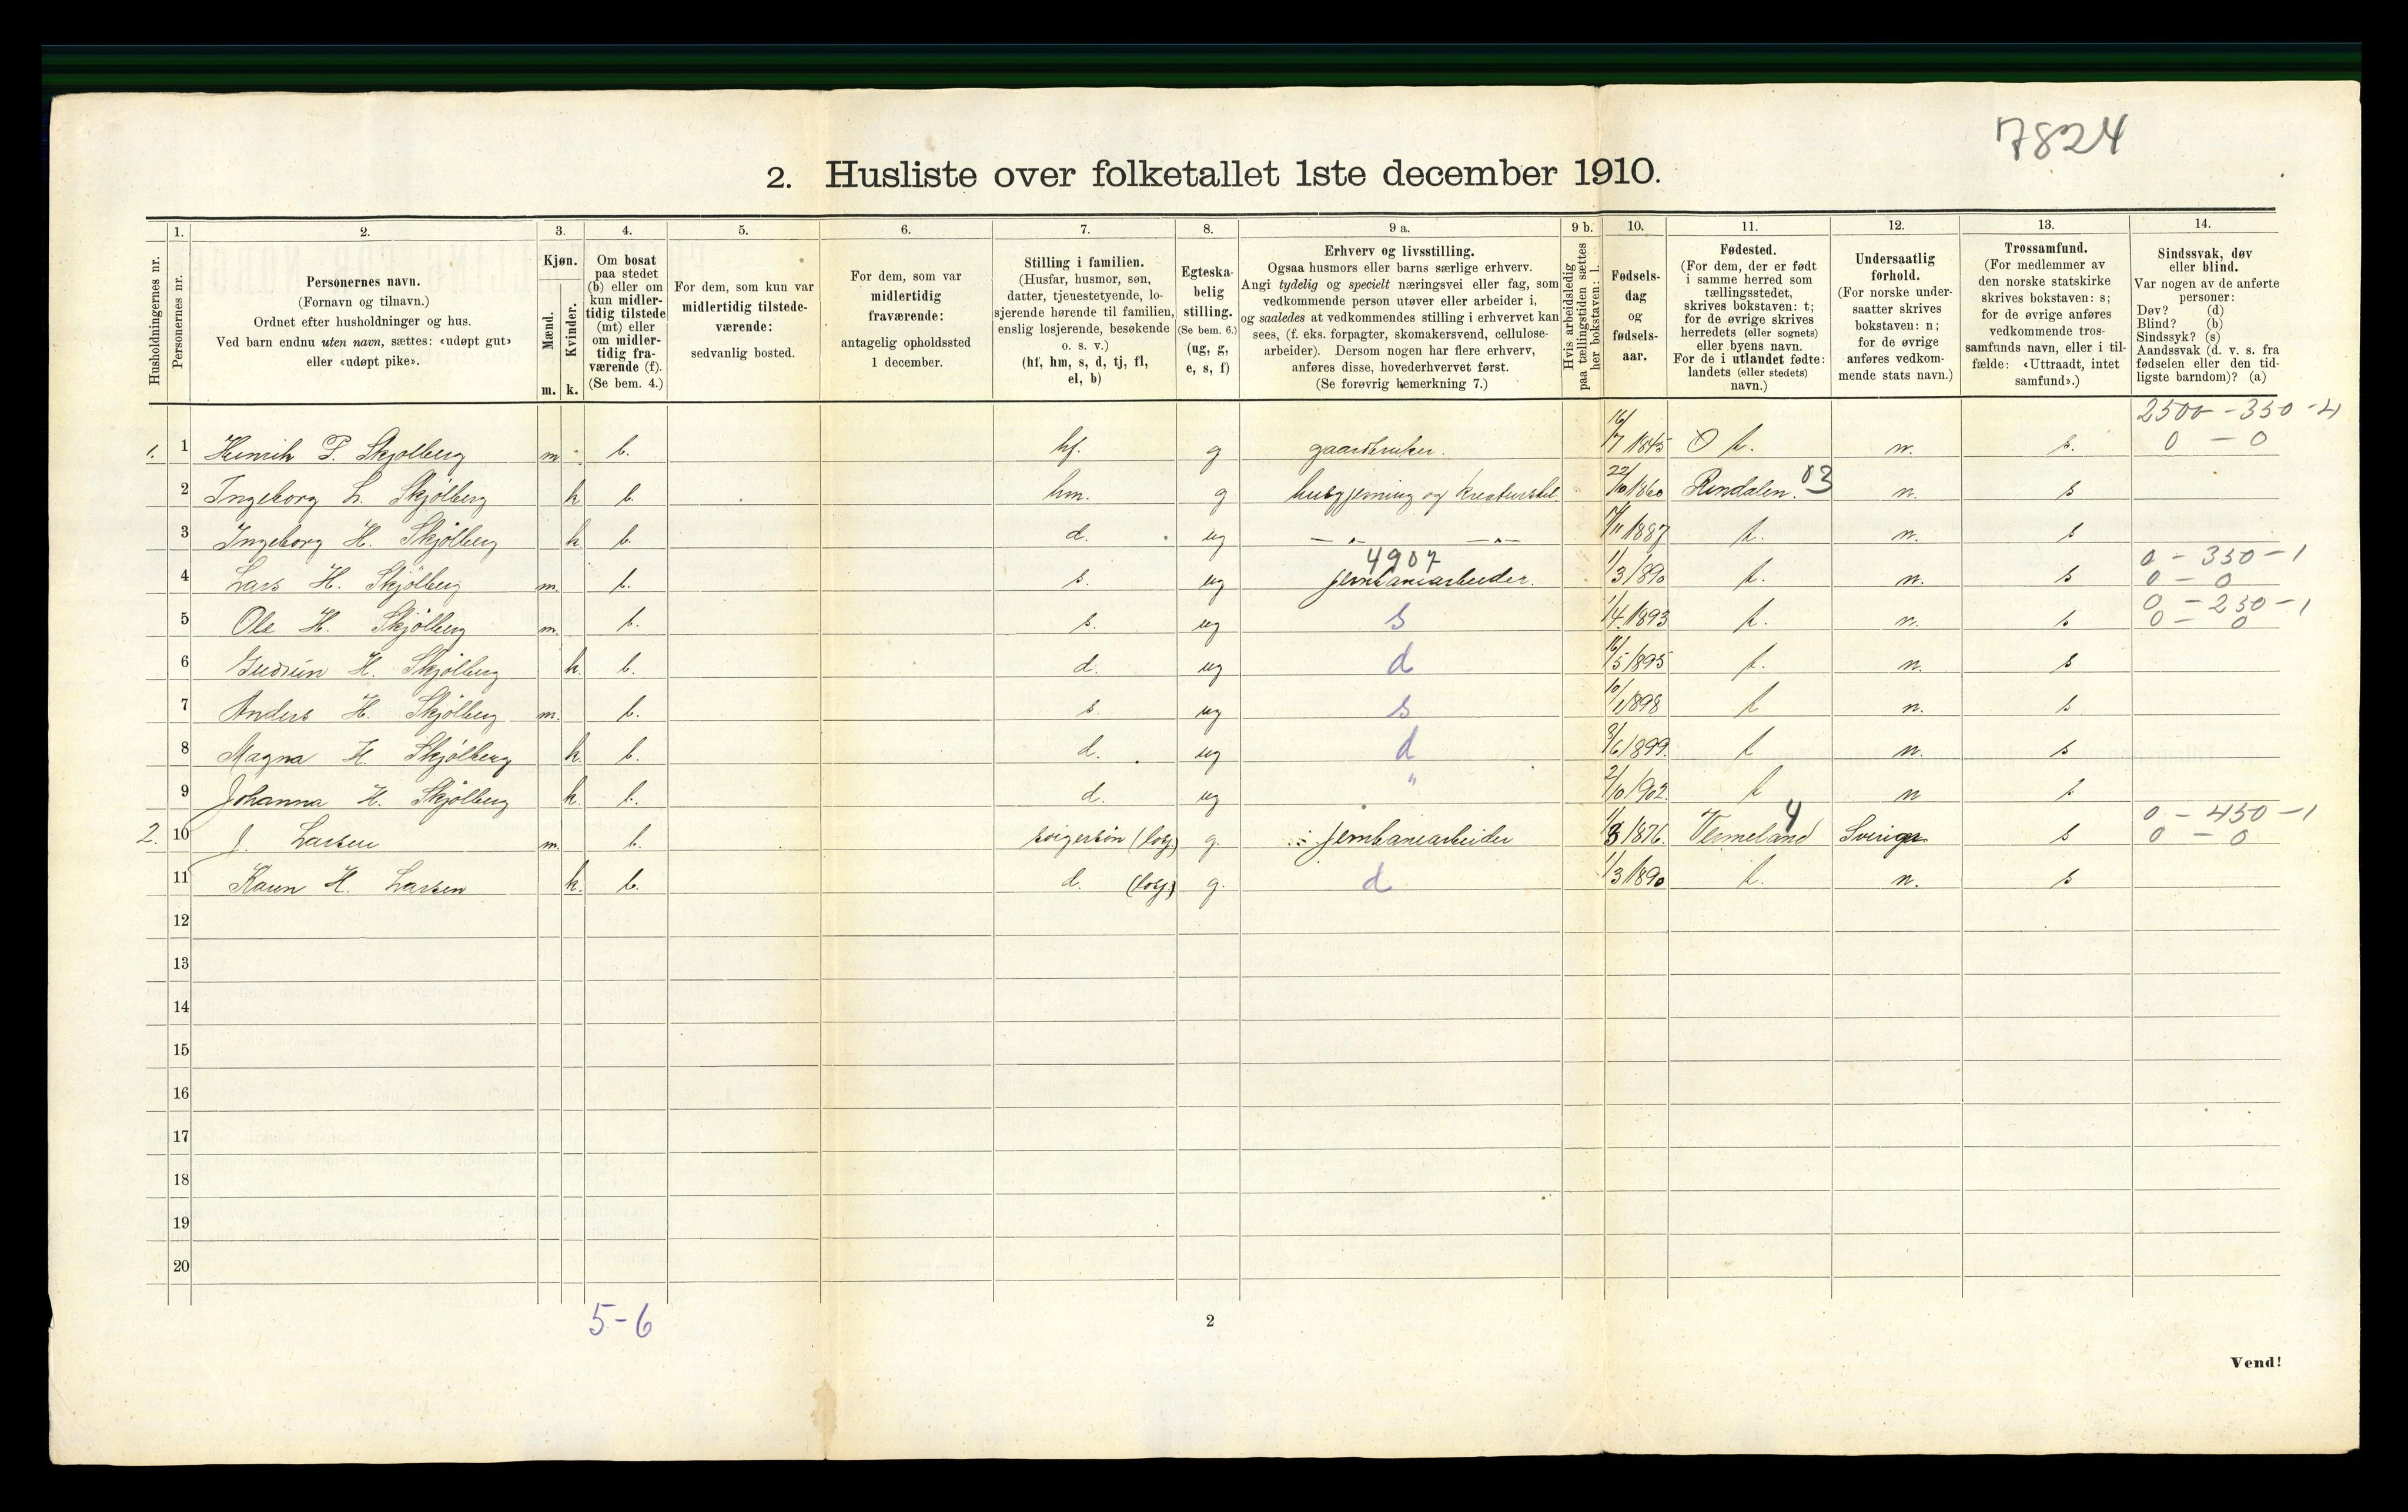 7824
2. Husliste over folketallet 1ste december 1910.
1. 2. 3. 4. 5. 6. 7. 8. 9 a. 9 b. 10. 11. 12. 13. 14.
Husholdningernes nr.
Personernes nr.
Personernes navn.
(Fornavn og tilnavn.)
Ordnet efter husholdninger og hus.
Ved barn endnu uten navn, sættes: «udøpt gut»
eller «udøpt pike».
Kjøn.
Mænd.
Kvinder.
m. k.
Om bosat
paa stedet
(b) eller om
kun midler-
tidig tilstede
(mt) eller
om midler-
tidig fra-
værende (f).
(Se bem. 4.)
For dem, som kun var
midlertidig tilstede-
værende:
sedvanlig bosted.
For dem, som var
midlertidig
fraværende:
antagelig opholdssted
1 december.
Stilling i familien.
(Husfar, husmor, søn,
datter, tjenestetyende, lo-
sjerende hørende til familien,
enslig losjerende, besøkende
o. s. v.)
(hf, hm, s, d, tj, fl,
el, b)
Egteska-
belig
stilling.
(Se bem. 6.)
(ug, g,
e, s, f)
Erhverv og livsstilling.
Ogsaa husmors eller barns særlige erhverv.
Angi tydelig og specielt næringsvei eller fag, som
vedkommende person utøver eller arbeider i,
og saaledes at vedkommendes stilling i erhvervet kan
sees, (f. eks. forpagter, skomakersvend, cellulose-
arbeider). Dersom nogen har flere erhverv,
anføres disse, hovederhvervet først.
(Se forøvrig bemerkning 7.)
Hvis arbeidsledig
paa tællingstiden sættes
her bokstaven: l.
Fødsels-
dag
og
fødsels-
aar.
Fødested.
(For dem, der er født
i samme herred som
tællingsstedet,
skrives bokstaven: t;
for de øvrige skrives
herredets (eller sognets)
eller byens navn.
For de i utlandet fødte:
landets (eller stedets)
navn.)
Undersaatlig
forhold.
(For norske under-
saatter skrives
bokstaven: n;
for de øvrige
anføres vedkom-
mende stats navn.)
Trossamfund.
(For medlemmer av
den norske statskirke
skrives bokstaven: s;
for de øvrige anføres
vedkommende tros-
samfunds navn, eller i til-
fælde: «Uttraadt, intet
samfund».)
Sindssvak, døv
eller blind.
Var nogen av de anførte
personer:
Døv? (d)
Blind? (b)
Sindssyk? (s)
Aandssvak (d. v. s. fra
fødselen eller den tid-
ligste barndom)? (a)
2500 - 350 - 4
1. 1 Henrik P. Skjølberg m b. hf. g gaardbruker. 16/7 1845 t. n. s. 0 - 0
2 Ingeborg L. Skjølberg k b. hm. g husgjerning og kreaturstel 22/10 1860 Rendalen. 03 n. s
3 Ingeborg H. Skjølberg k b. d. ug — " — — " — /11 1887 t. n. s
4907 0 - 350 - 1
4 Lars H. Skjølberg m. b. s. ug jernbanearbeider. 1/3 1890 t. n. s 0 - 0
0 - 250 - 1
5 Ole H. Skjølberg m. b. s. ug s 1/4 1893 t. n. s 0 - 0
6 Gudrun H. Skjølberg k. b. d. ug d 16/5 1895 t. n. s
7 Anders H. Skjølberg m. b. s. ug s 10/1 1898 t n. s
8 Magna H. Skjølberg k. b. d. ug d 9/6 1899. t n. s
9 Johanna H. Skjølberg k. b. d. ug " 2/10 1902 t n s
4 0 - 450 - 1
2. 10 J. Larsen m. b. svigersøn (losj.) g. jernbanearbeider 1/3 1876. Vermeland Sverige s 0 - 0
11 Karen H. Larsen k. b. d. (losj.) g. d 1/3 1890 t. n. s
12
13
14
15
16
17
18
19
20
5-6
2
Vend!